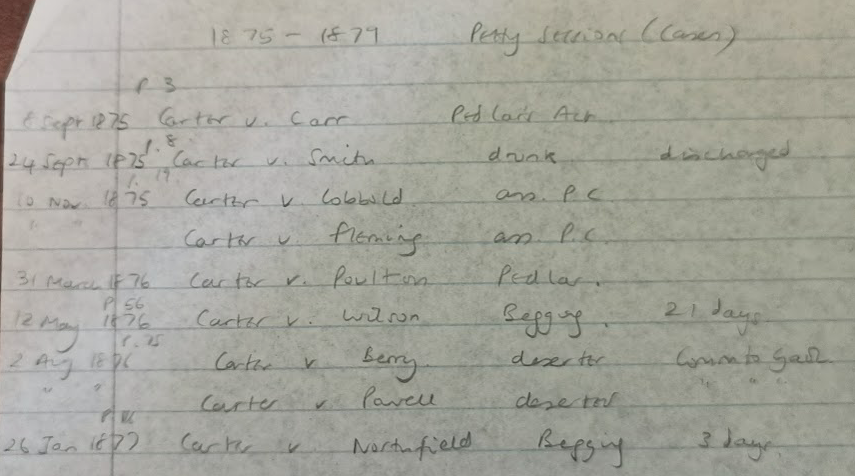 1875 - 1879 Petty Sessions (Cases)
P 3
8 Sept 1875 Carter v. Carr Pedlars Act
P. 8
24 Sept 1875 Carter v. Smith drunk discharged
P. 19
10 Nov 1875 Carter v Cobbold ass. P.C.
" " Carter v. Fleming ass. P.C.
31 March 1876 Carter v. Poulton Pedlar.
P 56
12 May 1876 Carter v. Wilson Begging. 21 days
2 Aug 1876 Carter v Berry deserter Comm to Gaol
" " Carter v Powell deserter " " "
26 Jan 1877 Carter v Northfield Begging 3 days